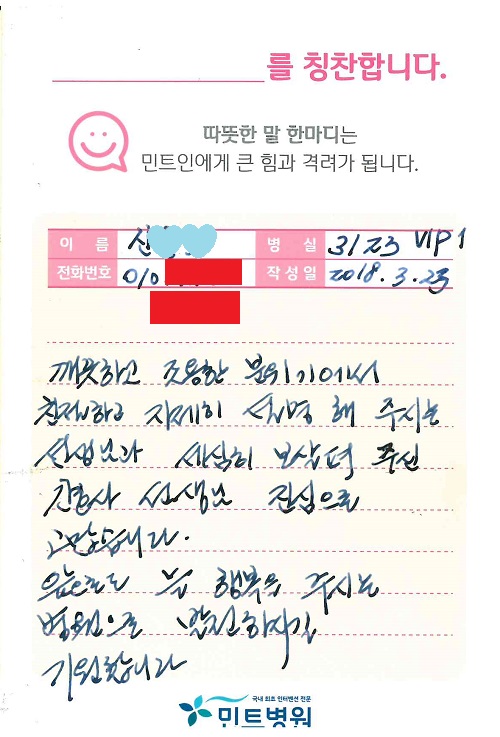 를 칭찬합니다.
따뜻한 말 한마디는
민트인에게 큰 힘과 격려가 됩니다.
이 름 신 병 실 3/23 VIP 1
전화번호 010 작성일 2018.3.23
깨끗하고 조용한 분위기에서
친절하고 자세히 설명 해 주시는
선생님과 세심히 보살펴 주신
간호사 선생님 진심으로
고맙습니다.
앞으로도 행복을 주시는
병원으로 발전하시길
기원합니다
국내 최초 인터벤션 전문
민트병원